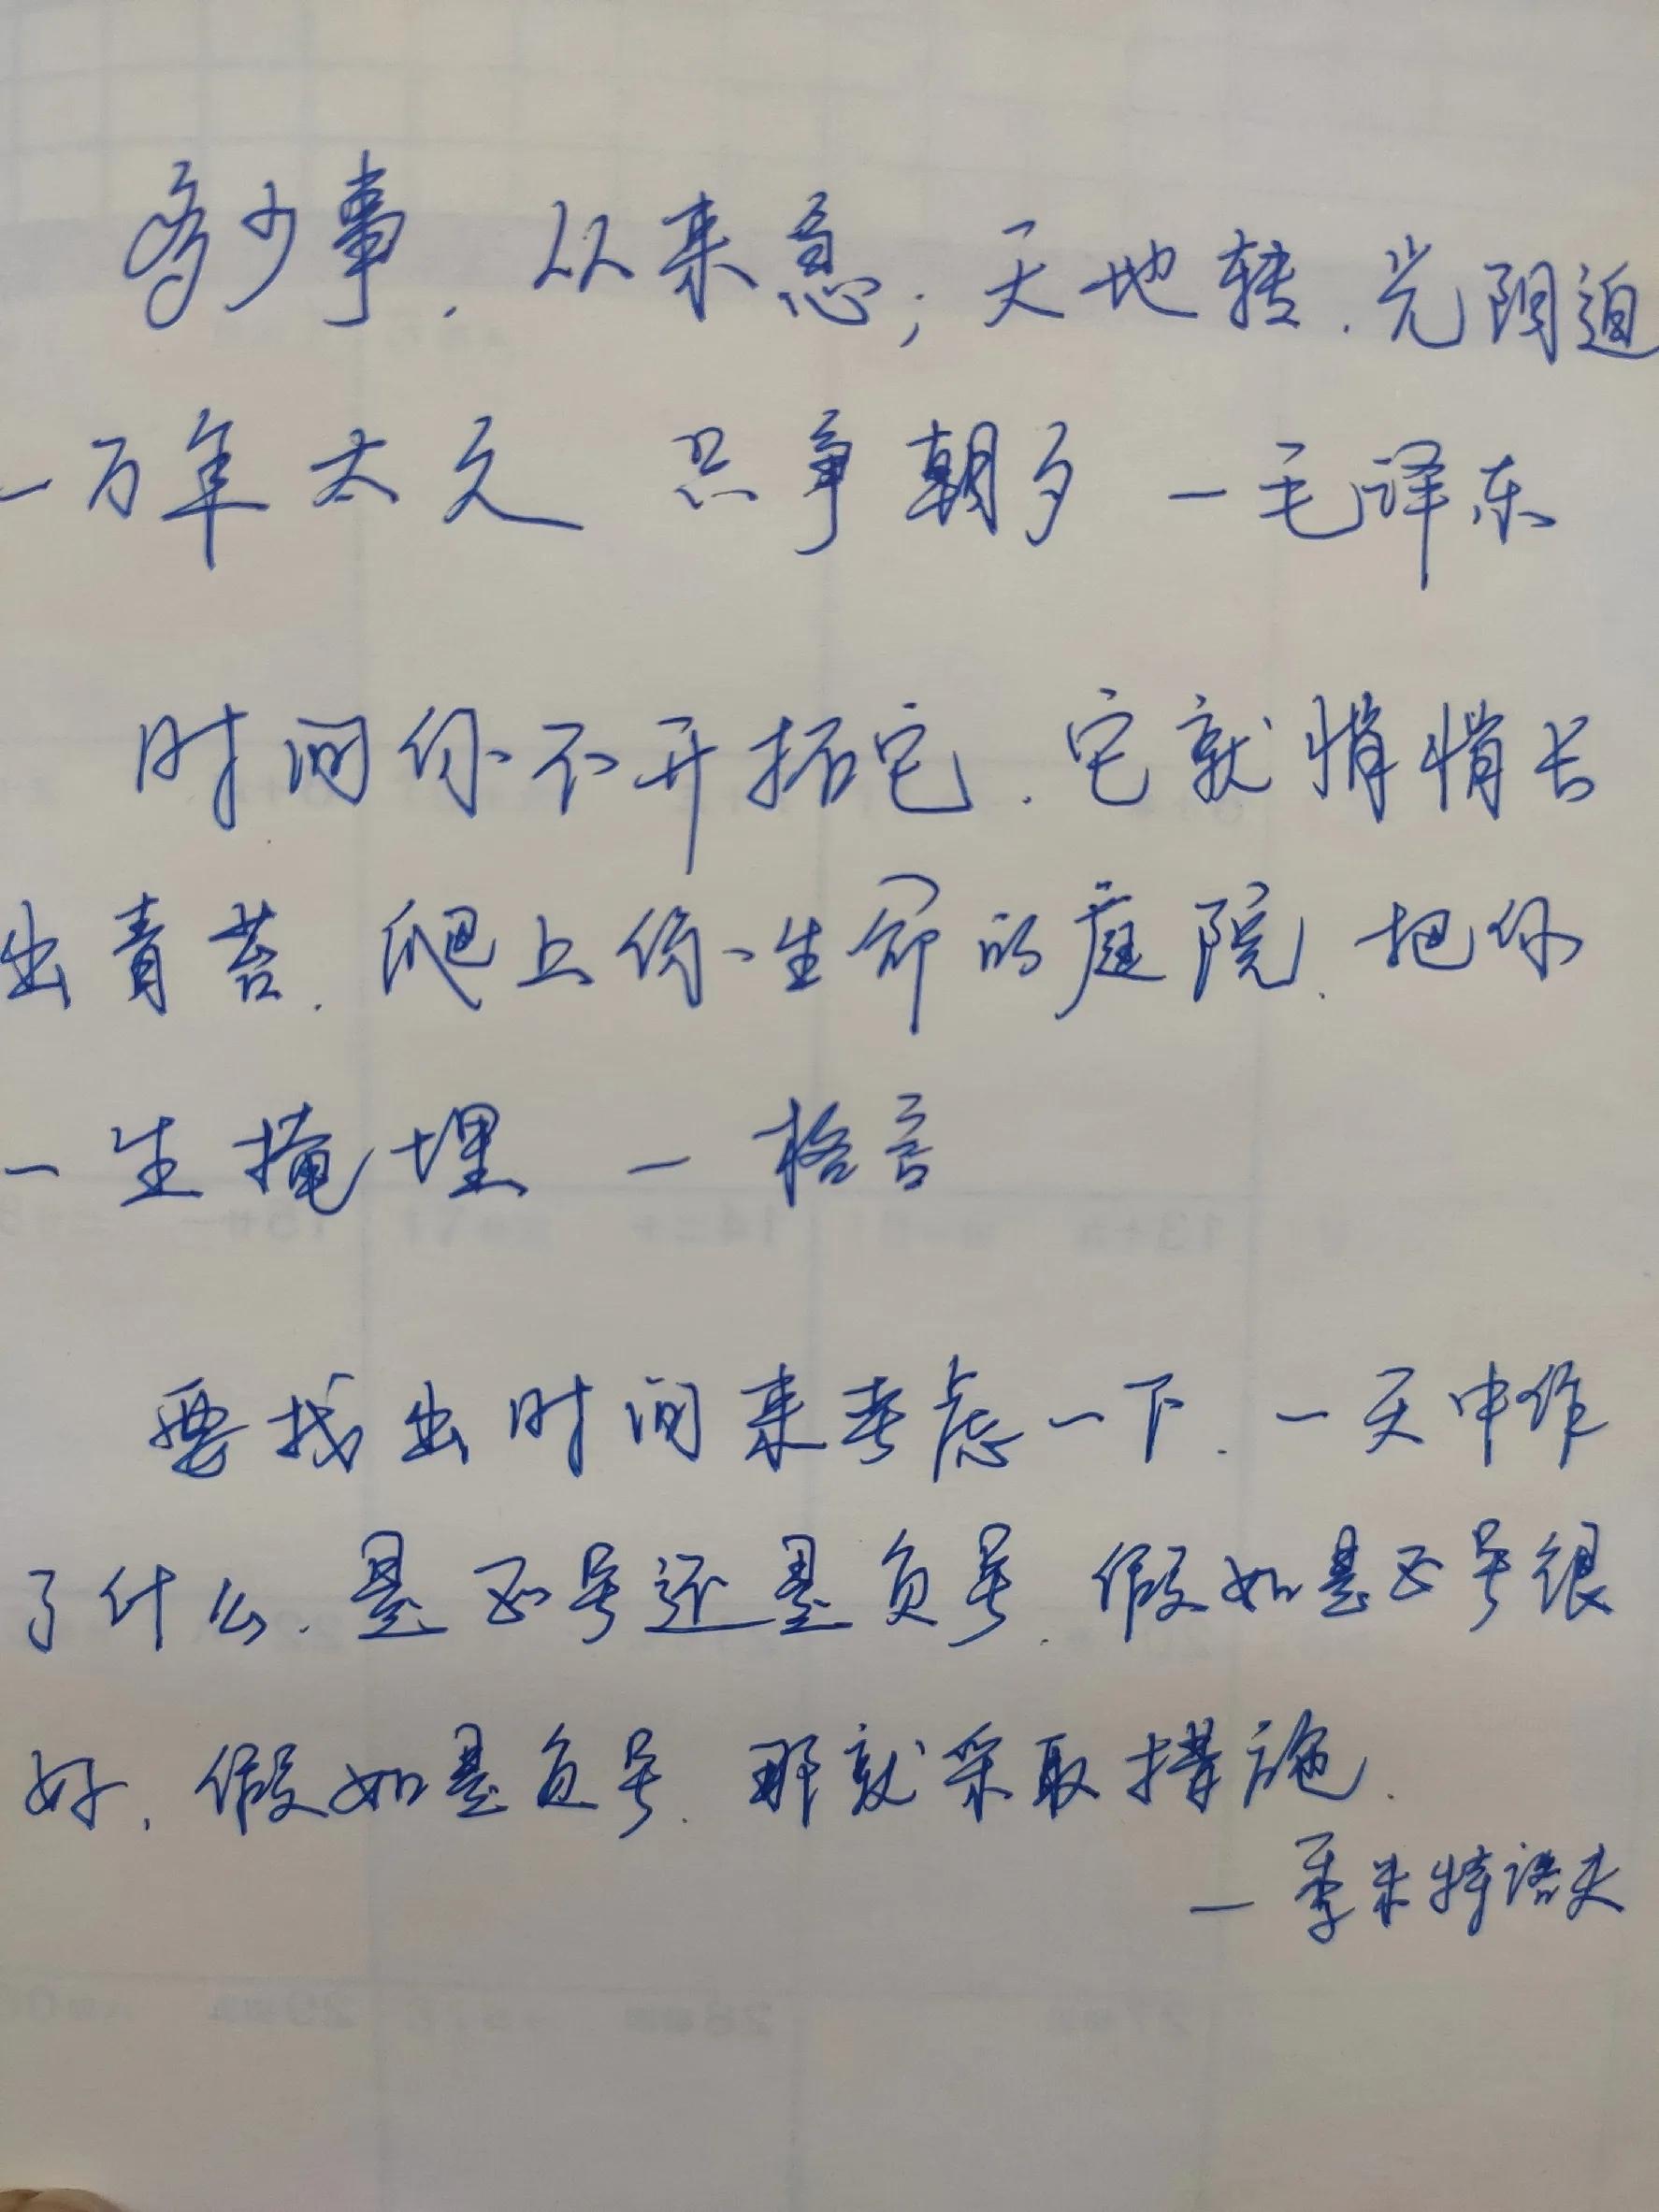 多少事，从来急；天地转，光阴迫
一万年太久 只争朝夕 —毛泽东
时间你不开拓它，它就悄悄长
出青苔，爬上你生命的庭院，把你
一生掩埋 —格言
要找出时间来考虑一下，一天中作
了什么，是正号还是负号，假如是正号很
好，假如是负号，那就采取措施．
—季米特洛夫